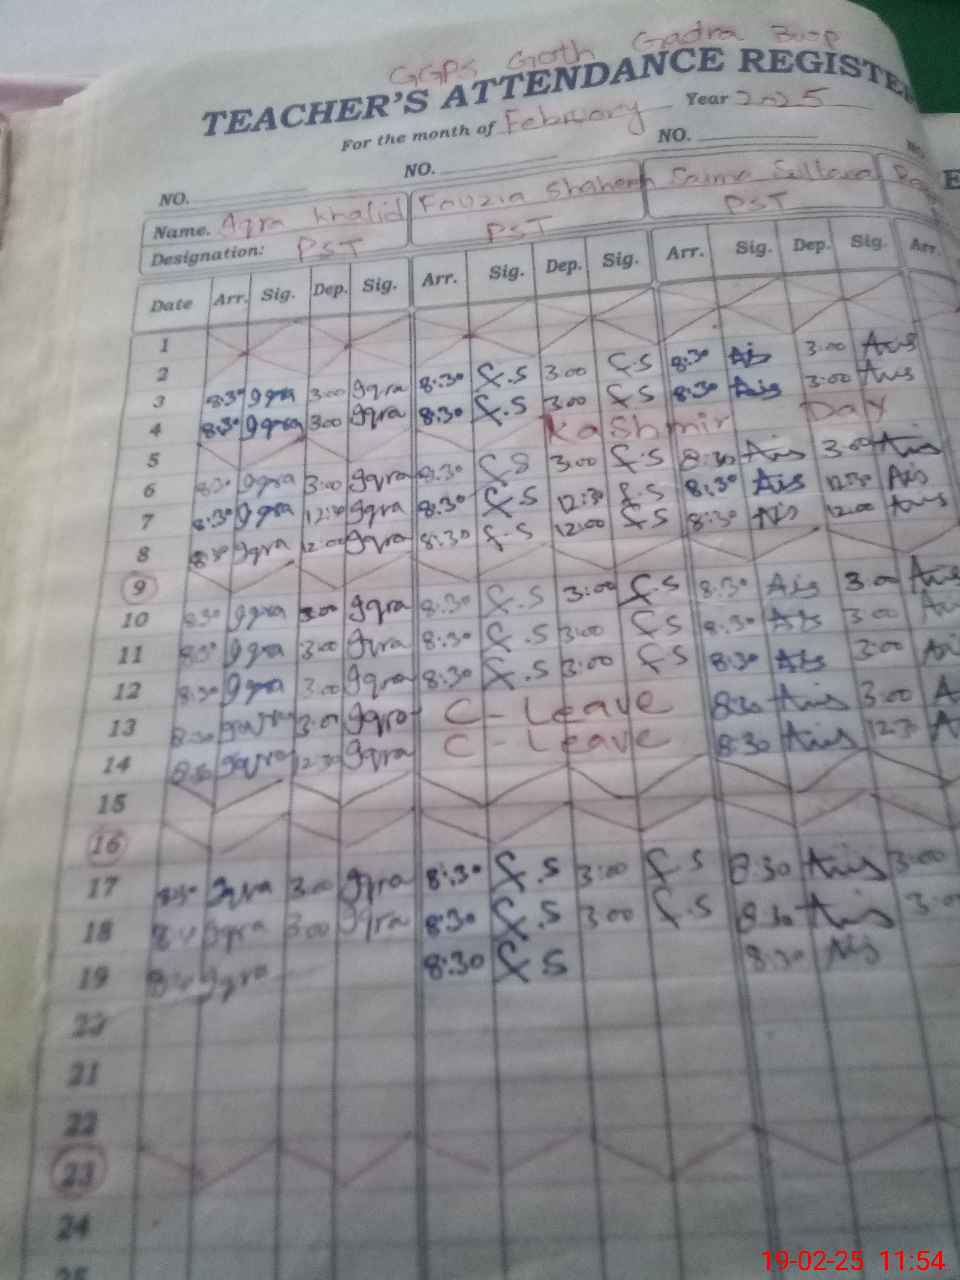 GGPS Goth Gadra
TEACHER'S ATTENDANCE REGISTE
For the month of February Year 2025
NO. NO. NO.
Name. Iqra Khalid Fauzia Shaheen Saima Sultana
Designation: PST PST PST
Date Arr. Sig. Dep. Sig. Arr. Sig. Dep. Sig. Arr. Sig. Dep. Sig. Arr.
1
2
3 8:30 Iqra 3:00 Iqra 8:30 f.s 3:00 f.s 8:30 3:00
4 8:30 Iqra 3:00 Iqra 8:30 f.s 3:00 f.s 8:30 3:00
5 Kashmir Day
6 8:30 Iqra 3:00 Iqra 8:30 f.s 3:00 f.s 8:30 3:00
7 8:30 Iqra 12:30 Iqra 8:30 f.s 12:30 f.s 8:30 12:30
8 8:30 Iqra 12:00 Iqra 8:30 f.s 12:00 f.s 8:30 12:00
9
10 8:30 Iqra 3:00 Iqra 8:30 f.s 3:00 f.s 8:30 3:00
11 8:30 Iqra 3:00 Iqra 8:30 f.s 3:00 f.s 8:30 3:00
12 8:30 Iqra 3:00 Iqra 8:30 f.s 3:00 f.s 8:30 3:00
13 8:30 Iqra 3:00 Iqra C-Leave 8:30 3:00
14 8:30 Iqra 12:30 Iqra C-Leave 8:30 12:30
15
16
17 8:30 Iqra 3:00 Iqra 8:30 f.s 3:00 f.s 8:30 3:00
18 8:30 Iqra 3:00 Iqra 8:30 f.s 3:00 f.s 8:30 3:00
19 8:30 Iqra 8:30 f.s 8:30
20
21
22
23
24
25
19-02-25 11:54